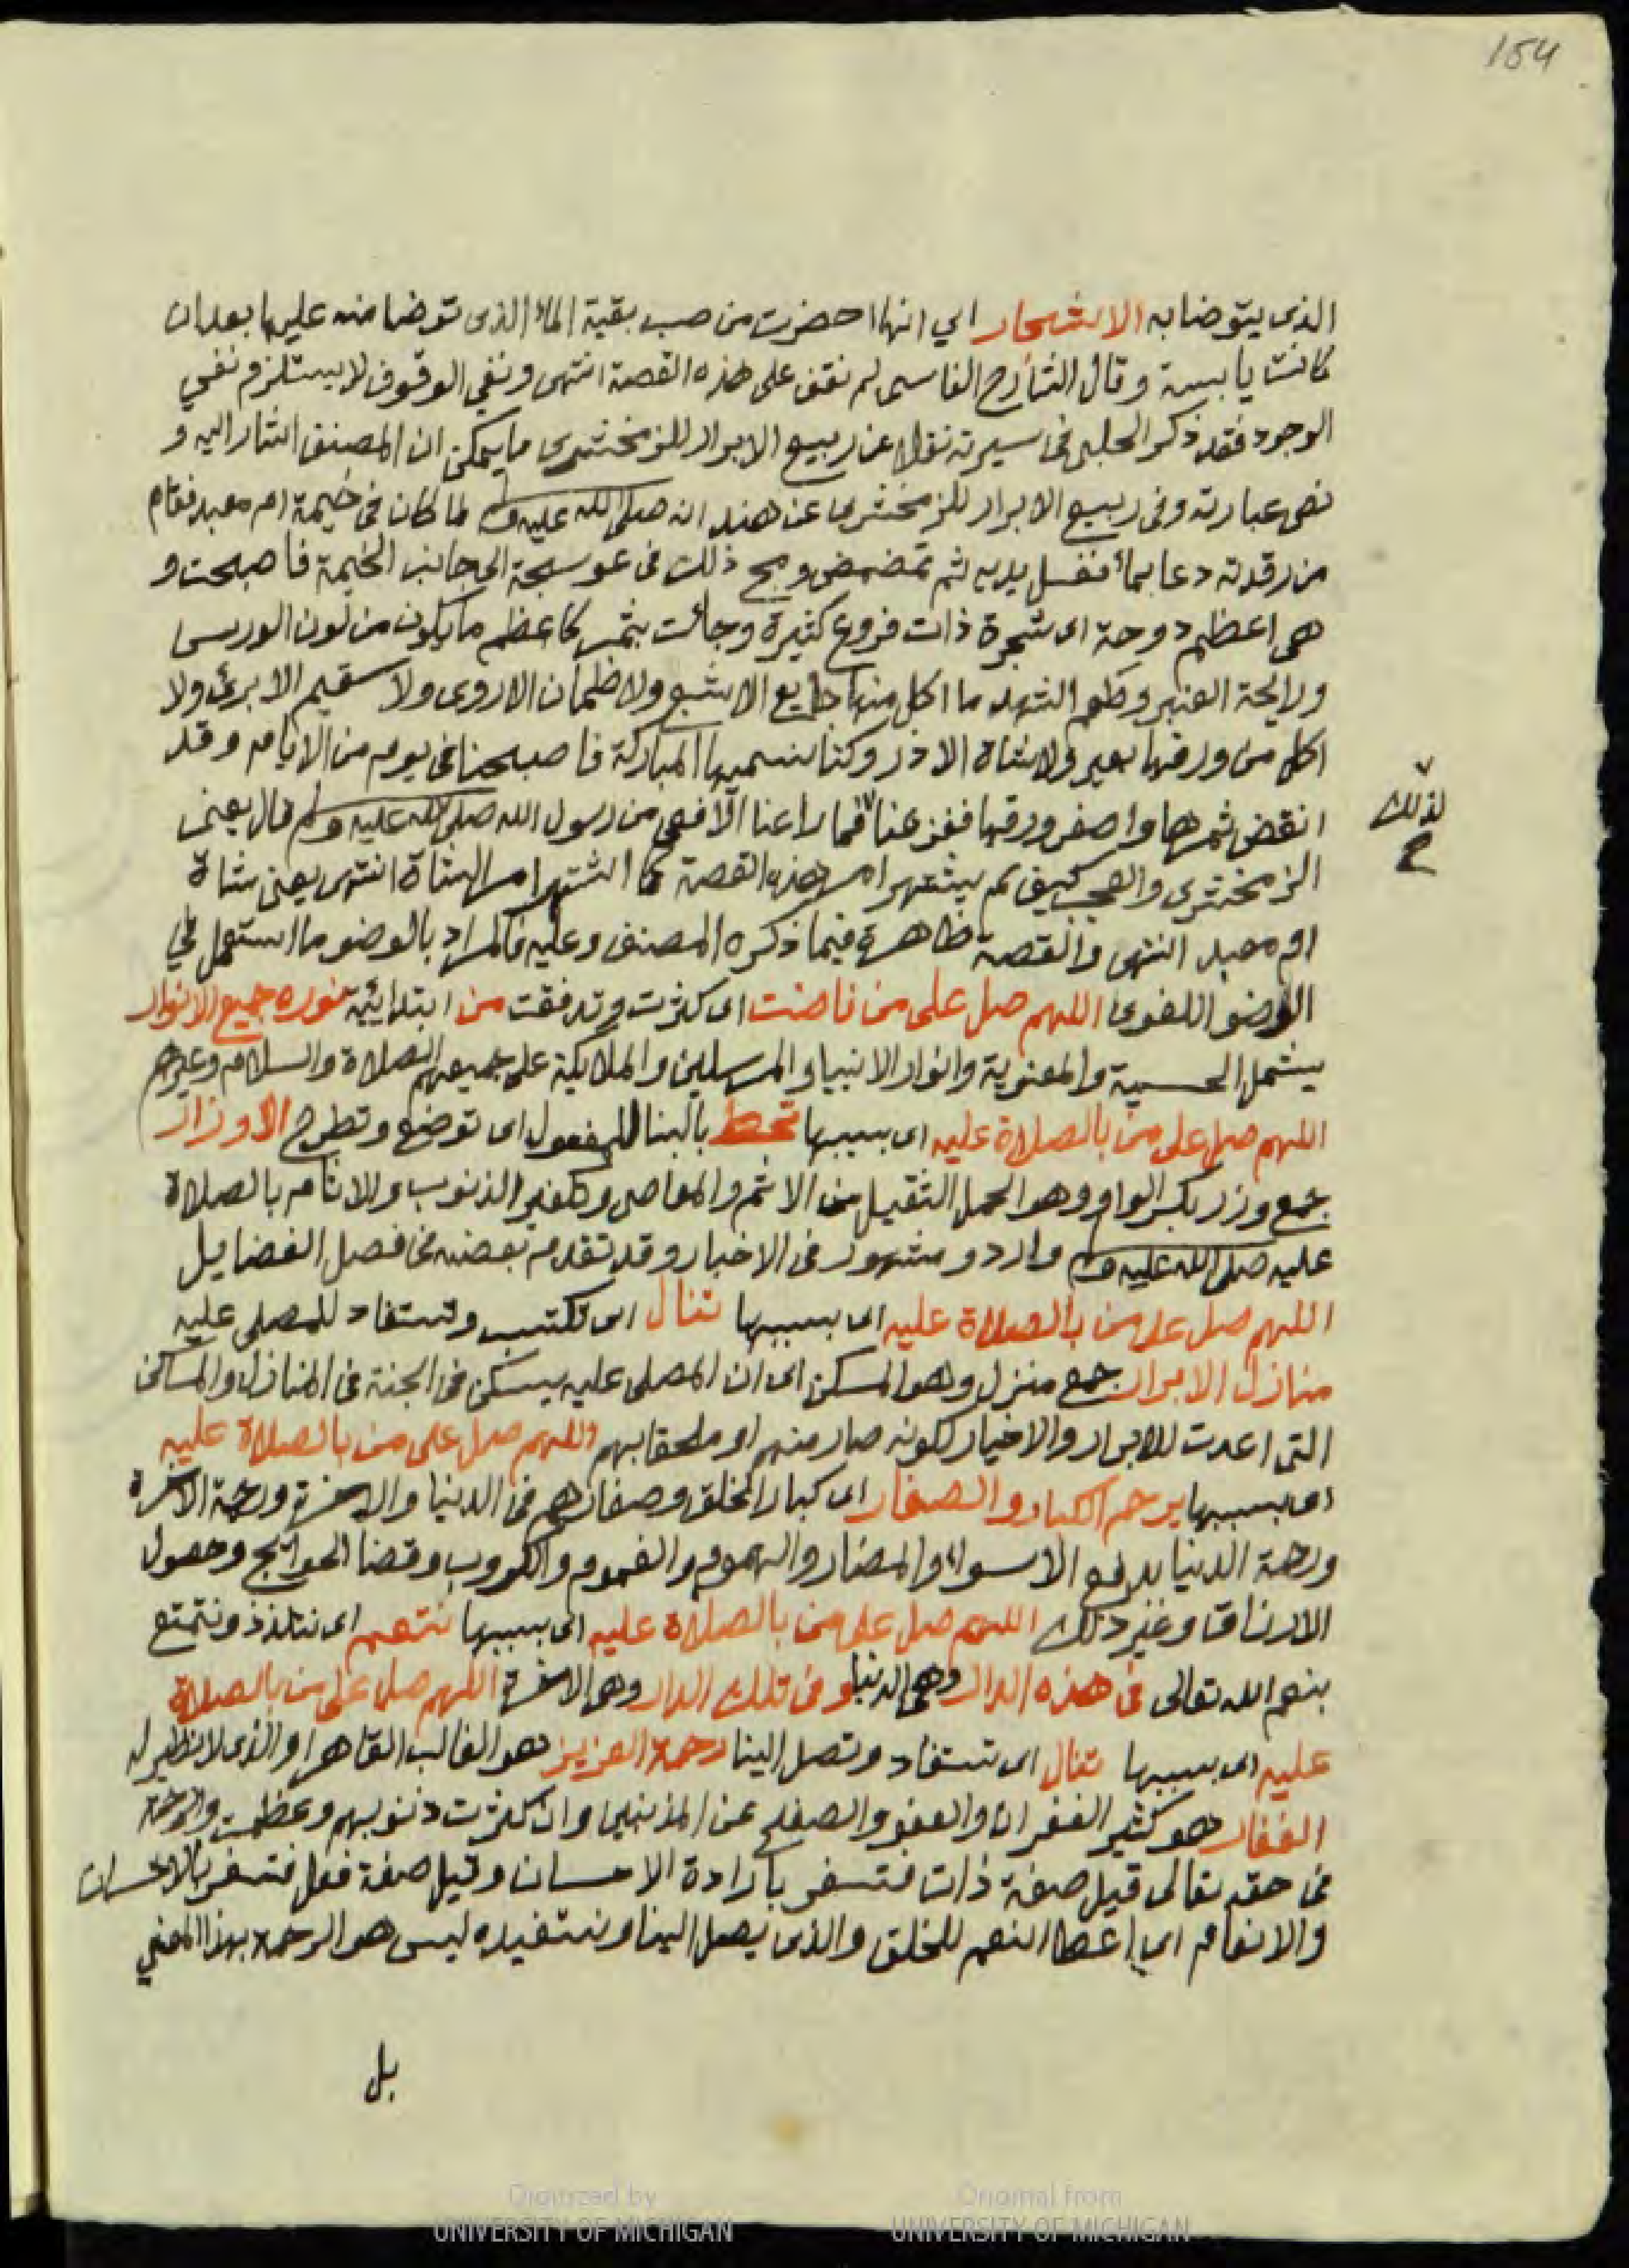 154
الذي يتوضا به الاشجار اي انها احضرت من صب بقية الماء الذي توضا منه عليها بعد ان
كانت يابسة وقال الشارح الفاسي لم نقف على هذه القصة انتهى ونفي الوقوف لا يستلزم نفي
الوجود فقد ذكر الحلبي في سيرته نقلا عن ربيع الابرار للزمخشري ما يمكن ان المصنف اشار اليه و
نص عبارته وفي ربيع الابرار للزمخشري عن هند انه صلى الله عليه وسلم لما كان في خيمة ام معبد فقام
من رقدته دعا بماء فغسل يديه ثم تمضمض ومج ذلك في عوسجة الى جانب الخيمة فاصبحت و
هي اعظم دوحة اى شجرة ذات فروع كثيرة وجائت بثمر كاعظم ما يكون من لون الورس
ورايحة العنبر وطعم الشهد ما اكل منها جايع الا شبع ولا ظمان الا روى ولا سقيم الا برئ ولا
اكل من ورقها بعير ولا شاة الا در وكنا نسميها المباركة فاصبحنا في يوم من الايام وقد
انقض ثمرها واصفر ورقها ففزعنا فما راعنا الا نعى من رسول الله صلى الله عليه وسلم قال يعني
لذلك
صح
الزمخشري والعجب كيف لم يشتهر امر هذه القصة كما اشتهر امر الشاة انتهى يعني شاة
ام معبد انتهى والقصة ظاهرة فيما ذكره المصنف وعليه فالمراد بالوضو ما استعمل في
الوضو اللغوى اللهم صل على من فاضت اى كثرت وتدفقت من ابتدائية نوره جميع الانوار
يشمل الحسية والمعنوية وانوار الانبيا والمرسلين والملايكة على جميعهم الصلاة والسلام وغيرهم
اللهم صل على من بالصلاة عليه اى بسببها تحط بالبنا للمفعول اى توضع وتطرح الاوزار
جمع وزر بكسر الواو وهو الحمل الثقيل من الاثم والمعاصى وتكفير الذنوب والاثام بالصلاة
عليه صلى الله عليه وسلم وارد ومشهور في الاخبار وقد تقدم بعضه في فصل الفضايل
اللهم صل على من بالصلاة عليه اى بسببها تنال اى تكتسب وتستفاد للمصلى عليه
منازل الابرار جمع منزل وهو المسكن اى ان المصلى عليه يسكن في الجنة في المنازل والمساكن
التى اعدت للابرار والاخيار لكونه صار منهم او ملحقا بهم اللهم صل على من بالصلاة عليه
اى بسببها يرحم الكبار والصغار اى كبار الخلق وصغارهم في الدنيا والاخرة ورحمة الاخرة
ورحمة الدنيا بدفع الاسواء والمضار والهموم والغموم والكروب وقضا الحوايج وحصول
الارزاق وغير ذلك اللهم صل على من بالصلاة عليه اى بسببها نتنعم اى نتلذذ ونتمتع
بنعم الله تعالى في هذه الدار وهى الدنيا وفي تلك الدار وهى الاخرة اللهم صل على من بالصلاة
عليه اى بسببها تنال اى تستفاد وتصل الينا رحمة العزيز هو الغالب القاهر او الذى لا نظير له
الغفار هو كثير الغفران والعفو والصفح عن المذنبين وان كثرت ذنوبهم وعظمت والرحمة
في حقه تعالى قيل صفة ذات فتفسر بارادة الاحسان وقيل صفة فعل فتفسر بالاحسان
والانعام اى اعطا النعم للخلق والذى يصل الينا ونستفيده ليس هو الرحمة بهذا المعنى
بل
Digitized by
UNIVERSITY OF MICHIGAN
Original from
UNIVERSITY OF MICHIGAN